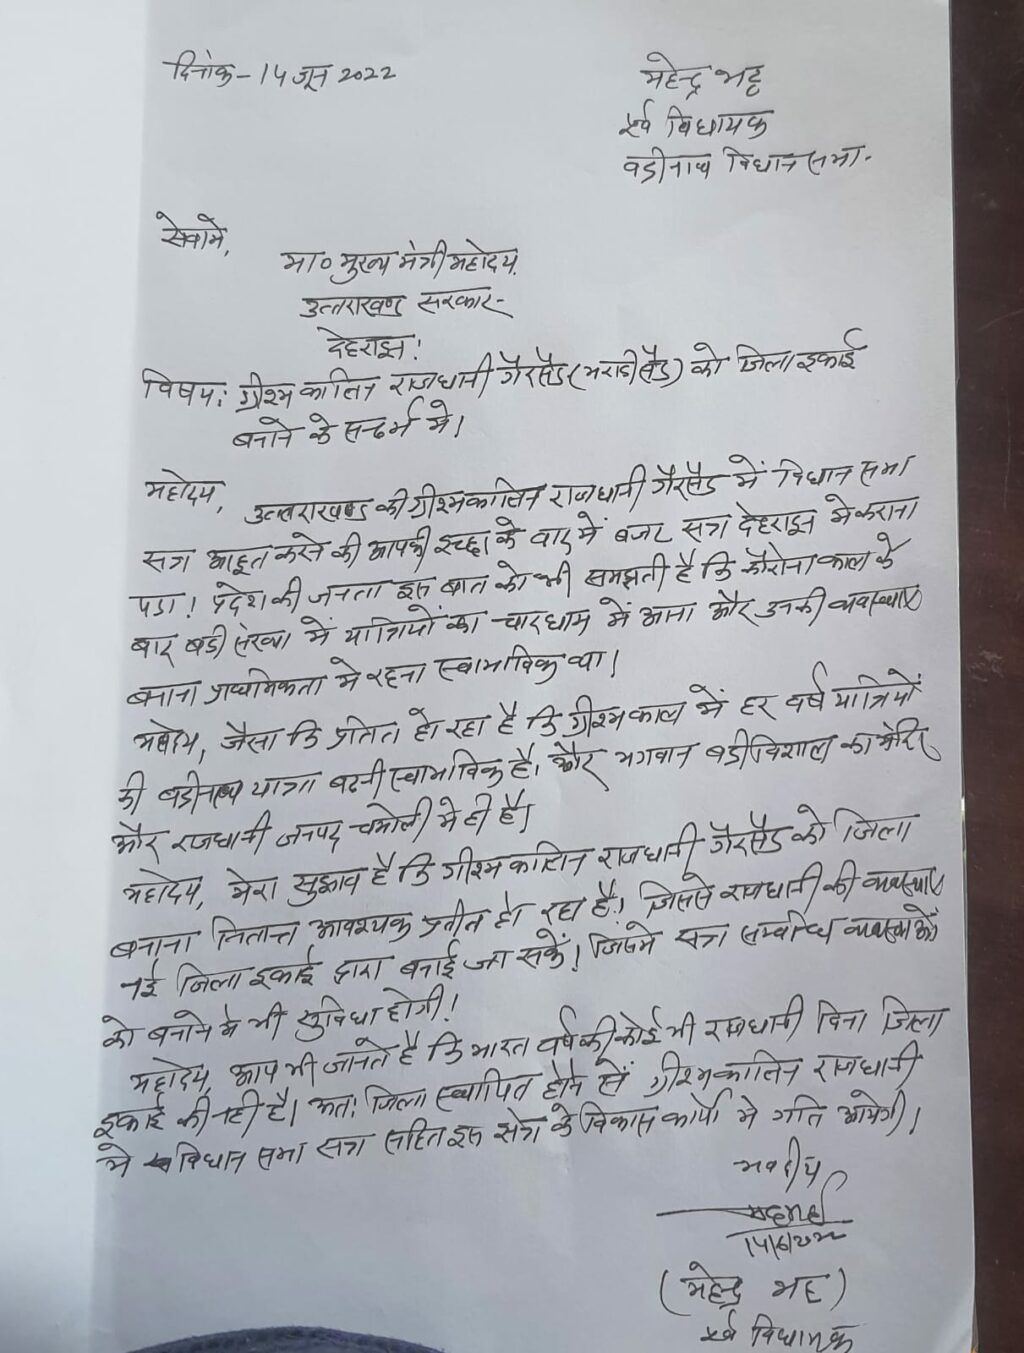 दिनांक - 14 जून 2022
महेन्द्र भट्ट
पूर्व विधायक
बद्रीनाथ विधान सभा.
सेवामे,
मा० मुख्य मंत्री महोदय,
उत्तराखण्ड सरकार-
देहरादून!
विषय: ग्रीश्म कालिन राजधानी गैरसैंड (भराडीसैंड) को जिला इकाई
बनाने के सन्दर्भ मे।
महोदय, उत्तराखण्ड की ग्रीश्मकालिन राजधानी गैरसैंड में विधान सभा
सत्र आहूत करने की आपकी इच्छा के बाद में बजट सत्र देहरादून मे कराना
पडा! प्रदेश की जनता इस बात को भी समझती है कि कोरोना काल के
बाद बडी संख्या में यात्रियों का चारधाम में आना और उनकी व्यवस्थाऐ
बनाना प्राथमिकता मे रहना स्वाभाविक था।
महोदय, जैसा कि प्रतित हो रहा है कि ग्रीश्म काल में हर वर्ष यात्रियों
की बद्रीनाथ यात्रा बढनी स्वाभाविक है। और भगवान बद्रीविशाल का मंदिर
और राजधानी जनपद चमोली मे ही है।
महोदय, मेरा सुझाव है कि ग्रीश्म कालिन राजधानी गैरसैंड को जिला
बनाना नितान्त आवश्यक प्रतीत हो रहा है! जिससे राजधानी की व्यवस्थाऐ
नई जिला इकाई द्वारा बनाई जा सकें! जिसमे सत्र सम्बन्धि व्यवस्थाओं
को बनाने मे भी सुविधा होगी!
महोदय, आप भी जानते है कि भारत वर्ष की कोई भी राजधानी बिना जिला
इकाई की नही है। अतः जिला स्थापित होने से ग्रीश्मकालिन राजधानी
मे विधान सभा सत्र सहित इस क्षेत्र के विकास कार्यो मे गति आयेगी।
भवदीय
14/6/2022
(महेन्द्र भट्ट)
पूर्व विधायक